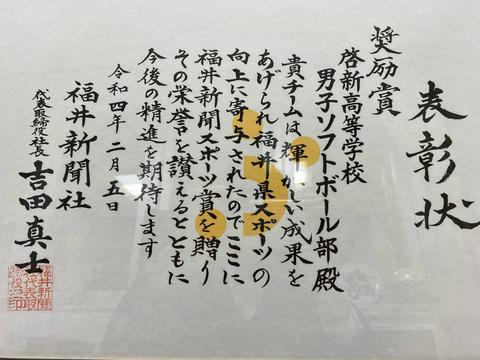 表彰状
奨励賞
啓新高等学校
男子ソフトボール部殿
貴チームは輝かしい成果を
あげられ福井県スポーツの
向上に寄与されたのでここに
福井新聞スポーツ賞を贈り
その栄誉を讃えるとともに
今後の精進を期待します
令和四年二月五日
福井新聞社
代表取締役社長 吉田真士